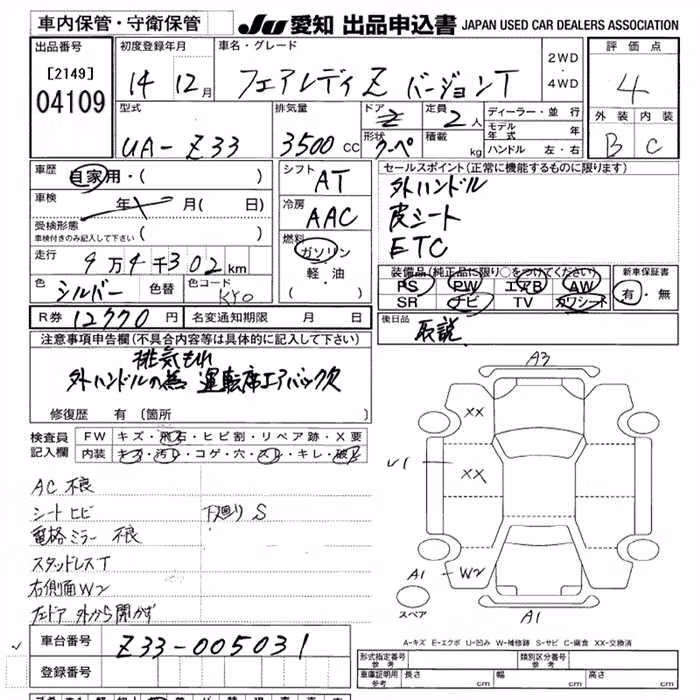 車内保管・守衛保管
JU 愛知 出品申込書 JAPAN USED CAR DEALERS ASSOCIATION
出品番号
[2149]
04109
初度登録年月
14 12月
車名・グレード
フェアレディZ バージョンT
2WD
・
4WD
評価点
4
外装 内装
B C
型式
UA-Z33
排気量
3500cc
ドア
2
定員
2人
形状
クーペ
積載
kg
ディーラー・並行
モデル年式 年
ハンドル 左・右
車歴
自家用・( )
車検
年 月( 日)
受検形態
車検付きのみ記入して下さい ( )
走行
9万4千302km
色
シルバー
色替
色コード
KY0
R券 12770円
名変通知期限 月 日
シフト
AT
冷房
AAC
燃料
ガソリン
軽・油
( )
セールスポイント(正常に機能するものに限ります)
外ハンドル
皮シート
ETC
装備品(純正品に限り○をつけてください)
PS PW エアB AW
SR ナビ TV カワシート
新車保証書
有・無
後日品
取説
注意事項申告欄(不具合内容等は具体的に記入して下さい)
排気もれ
外ハンドルの為 運転席エアバック欠
修復歴 有(箇所 )
検査員
記入欄
FW キズ・飛石・ヒビ割・リペア跡・X要
内装 キズ・汚レ・コゲ・穴・スレ・キレ・破レ
AC不良
シートヒビ
下廻りS
電格ミラー不良
スタッドレスT
右側面W2
左ドア外から開かず
A3
XX
U1
XX
A1
W2
スペア
A1
A-キズ E-エクボ U-凹み W-補修跡 S-サビ C-腐食 XX-交換済
車台番号 Z33-005031
登録番号
形式指定番号
参考
類別区分番号
参考
車庫証明用
参考
長さ cm
幅 cm
高さ cm